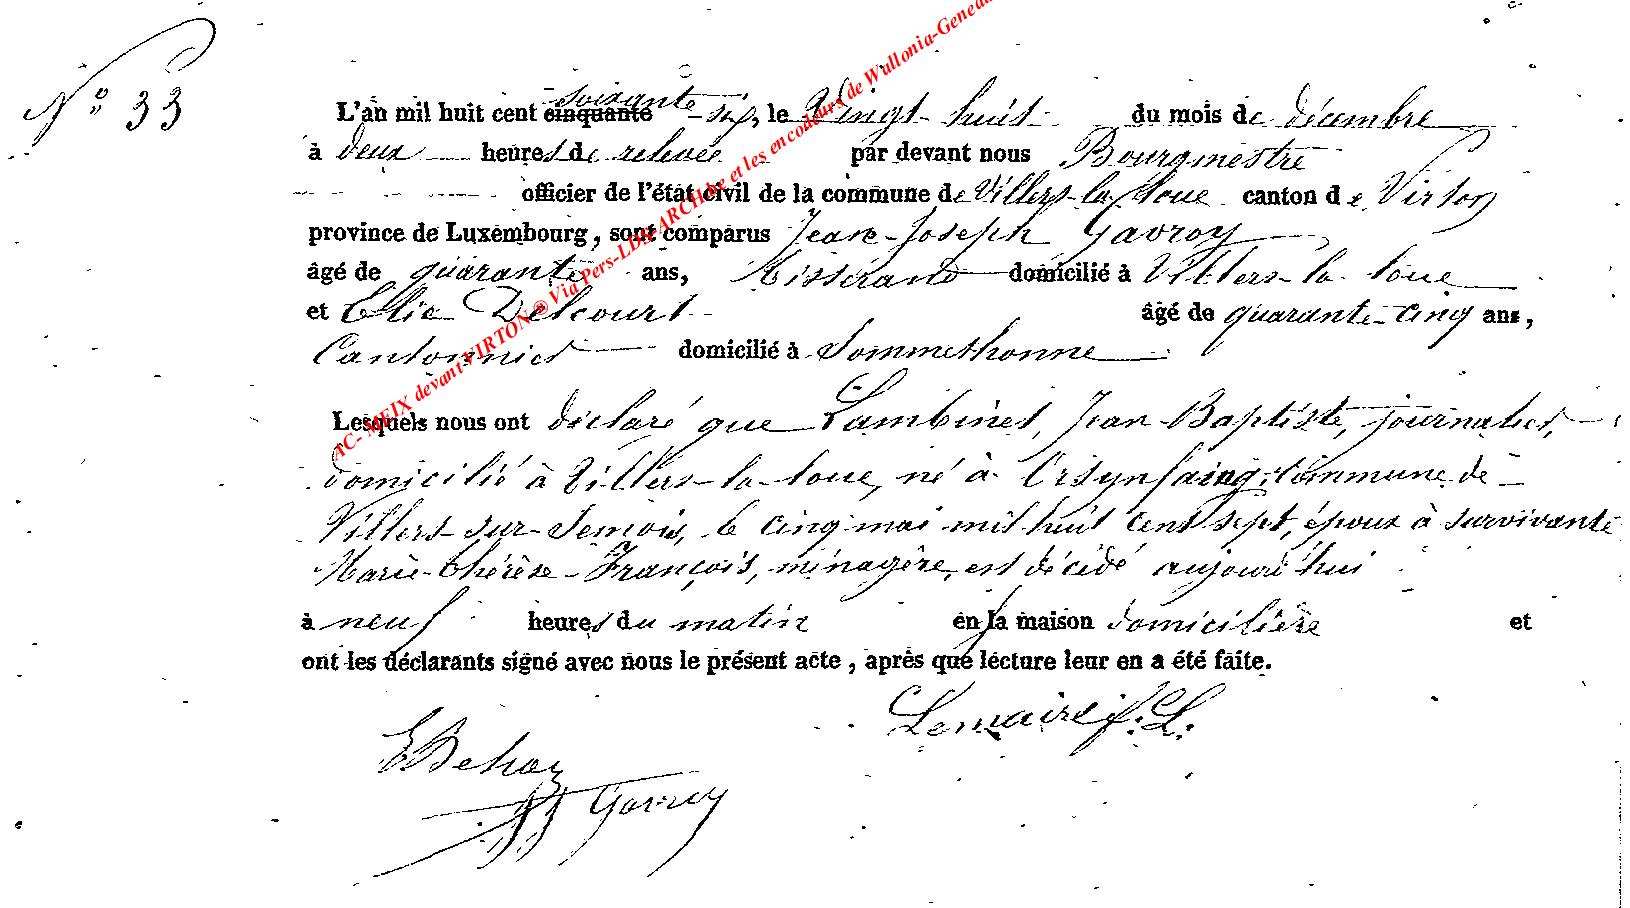 N° 33
L'an mil huit cent cinquante soixante - six, le Vingt-huit du mois de décembre
à deux heures de relevée par devant nous Bourgmestre
officier de l'état civil de la commune de Villers-la-loue canton de Virton
province de Luxembourg, sont comparus Jean-Joseph Gavroy
âgé de quarante ans, Tisserand domicilié à Villers-la-loue
et Elie Delcourt âgé de quarante-cinq ans,
Cantonnier domicilié à Sommethonne
Lesquels nous ont déclaré que Lambinet, Jean-Baptiste, journalier,
domicilié à Villers-la-loue, né à Orsynfaing, Commune de
Villers-sur-Semois, le cinq mai mil huit cent sept, époux à survivante
Marie-Thérèse-François, ménagère, est décédé aujourd'hui
à neuf heures du matin en sa maison domicilière et
ont les déclarants signé avec nous le présent acte, après que lecture leur en a été faite.
Lemaire f. L.
JJ Gavroy
AC- MEIX devant VIRTON ® Via Pers-LDR ARCH.be et les encodeurs de Wullonia-Genea